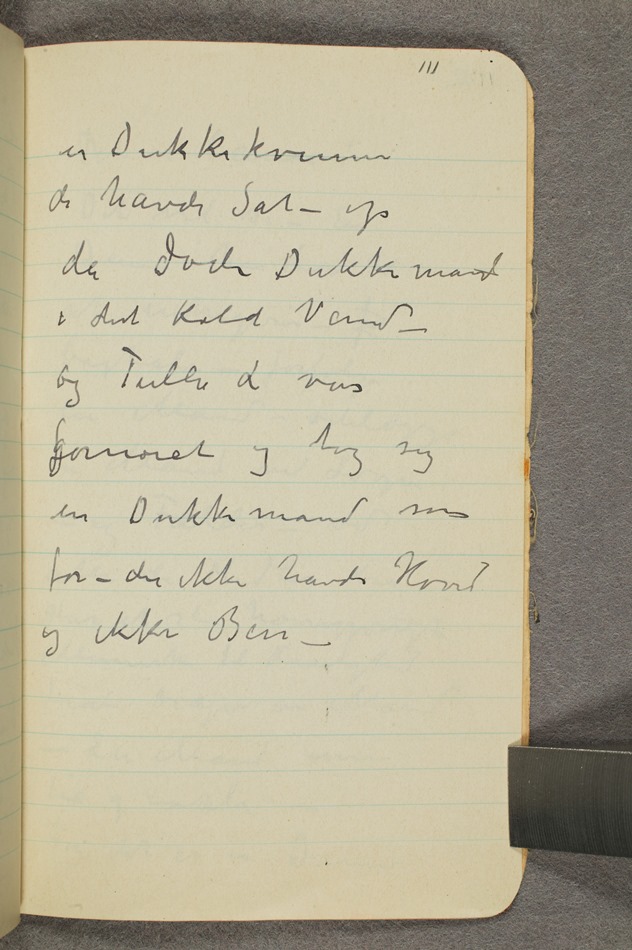 111
er Dukkekvinne
de havde Sat – op
da Døde Dukkemand
i det Kold Vand –
og Tulla L var
fornøiet og tog sig
en Dukkemand som
før – der ikke havde Hoved
og ikke Ben –